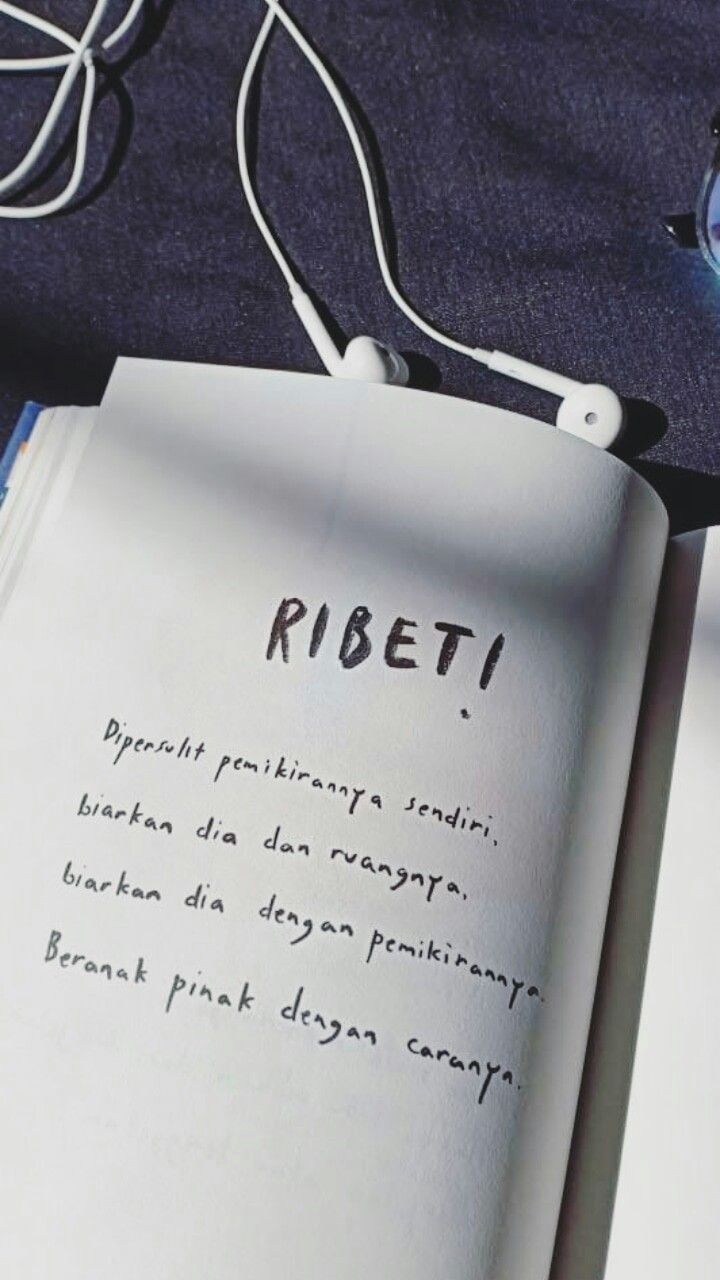 RIBET!
Dipersulit pemikirannya sendiri,
biarkan dia dan ruangnya,
biarkan dia dengan pemikirannya.
Beranak pinak dengan caranya.